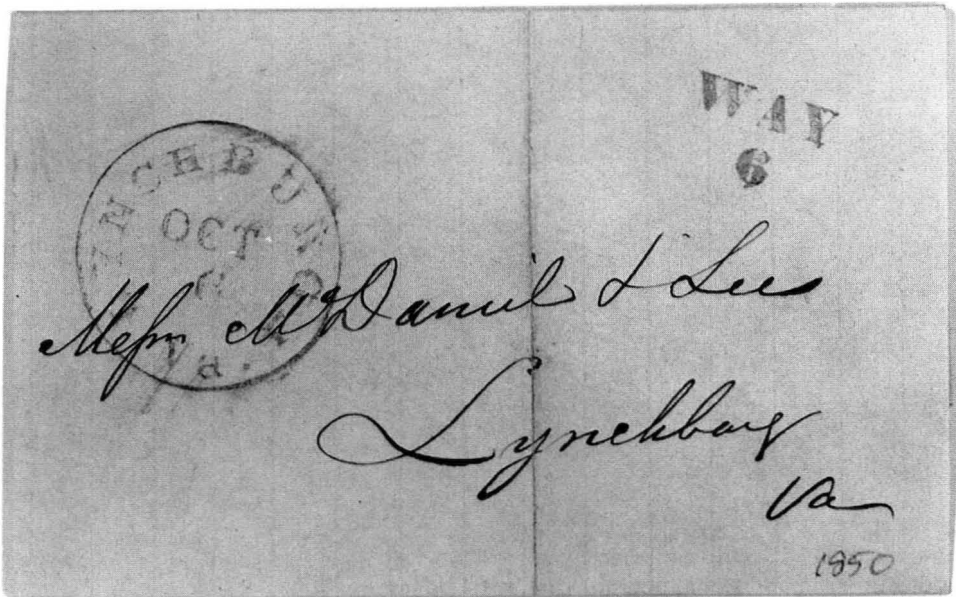 WAY
6
LYNCHBURG
OCT
Va.
Messrs McDaniel & Lees
Lynchburg
Va
1850